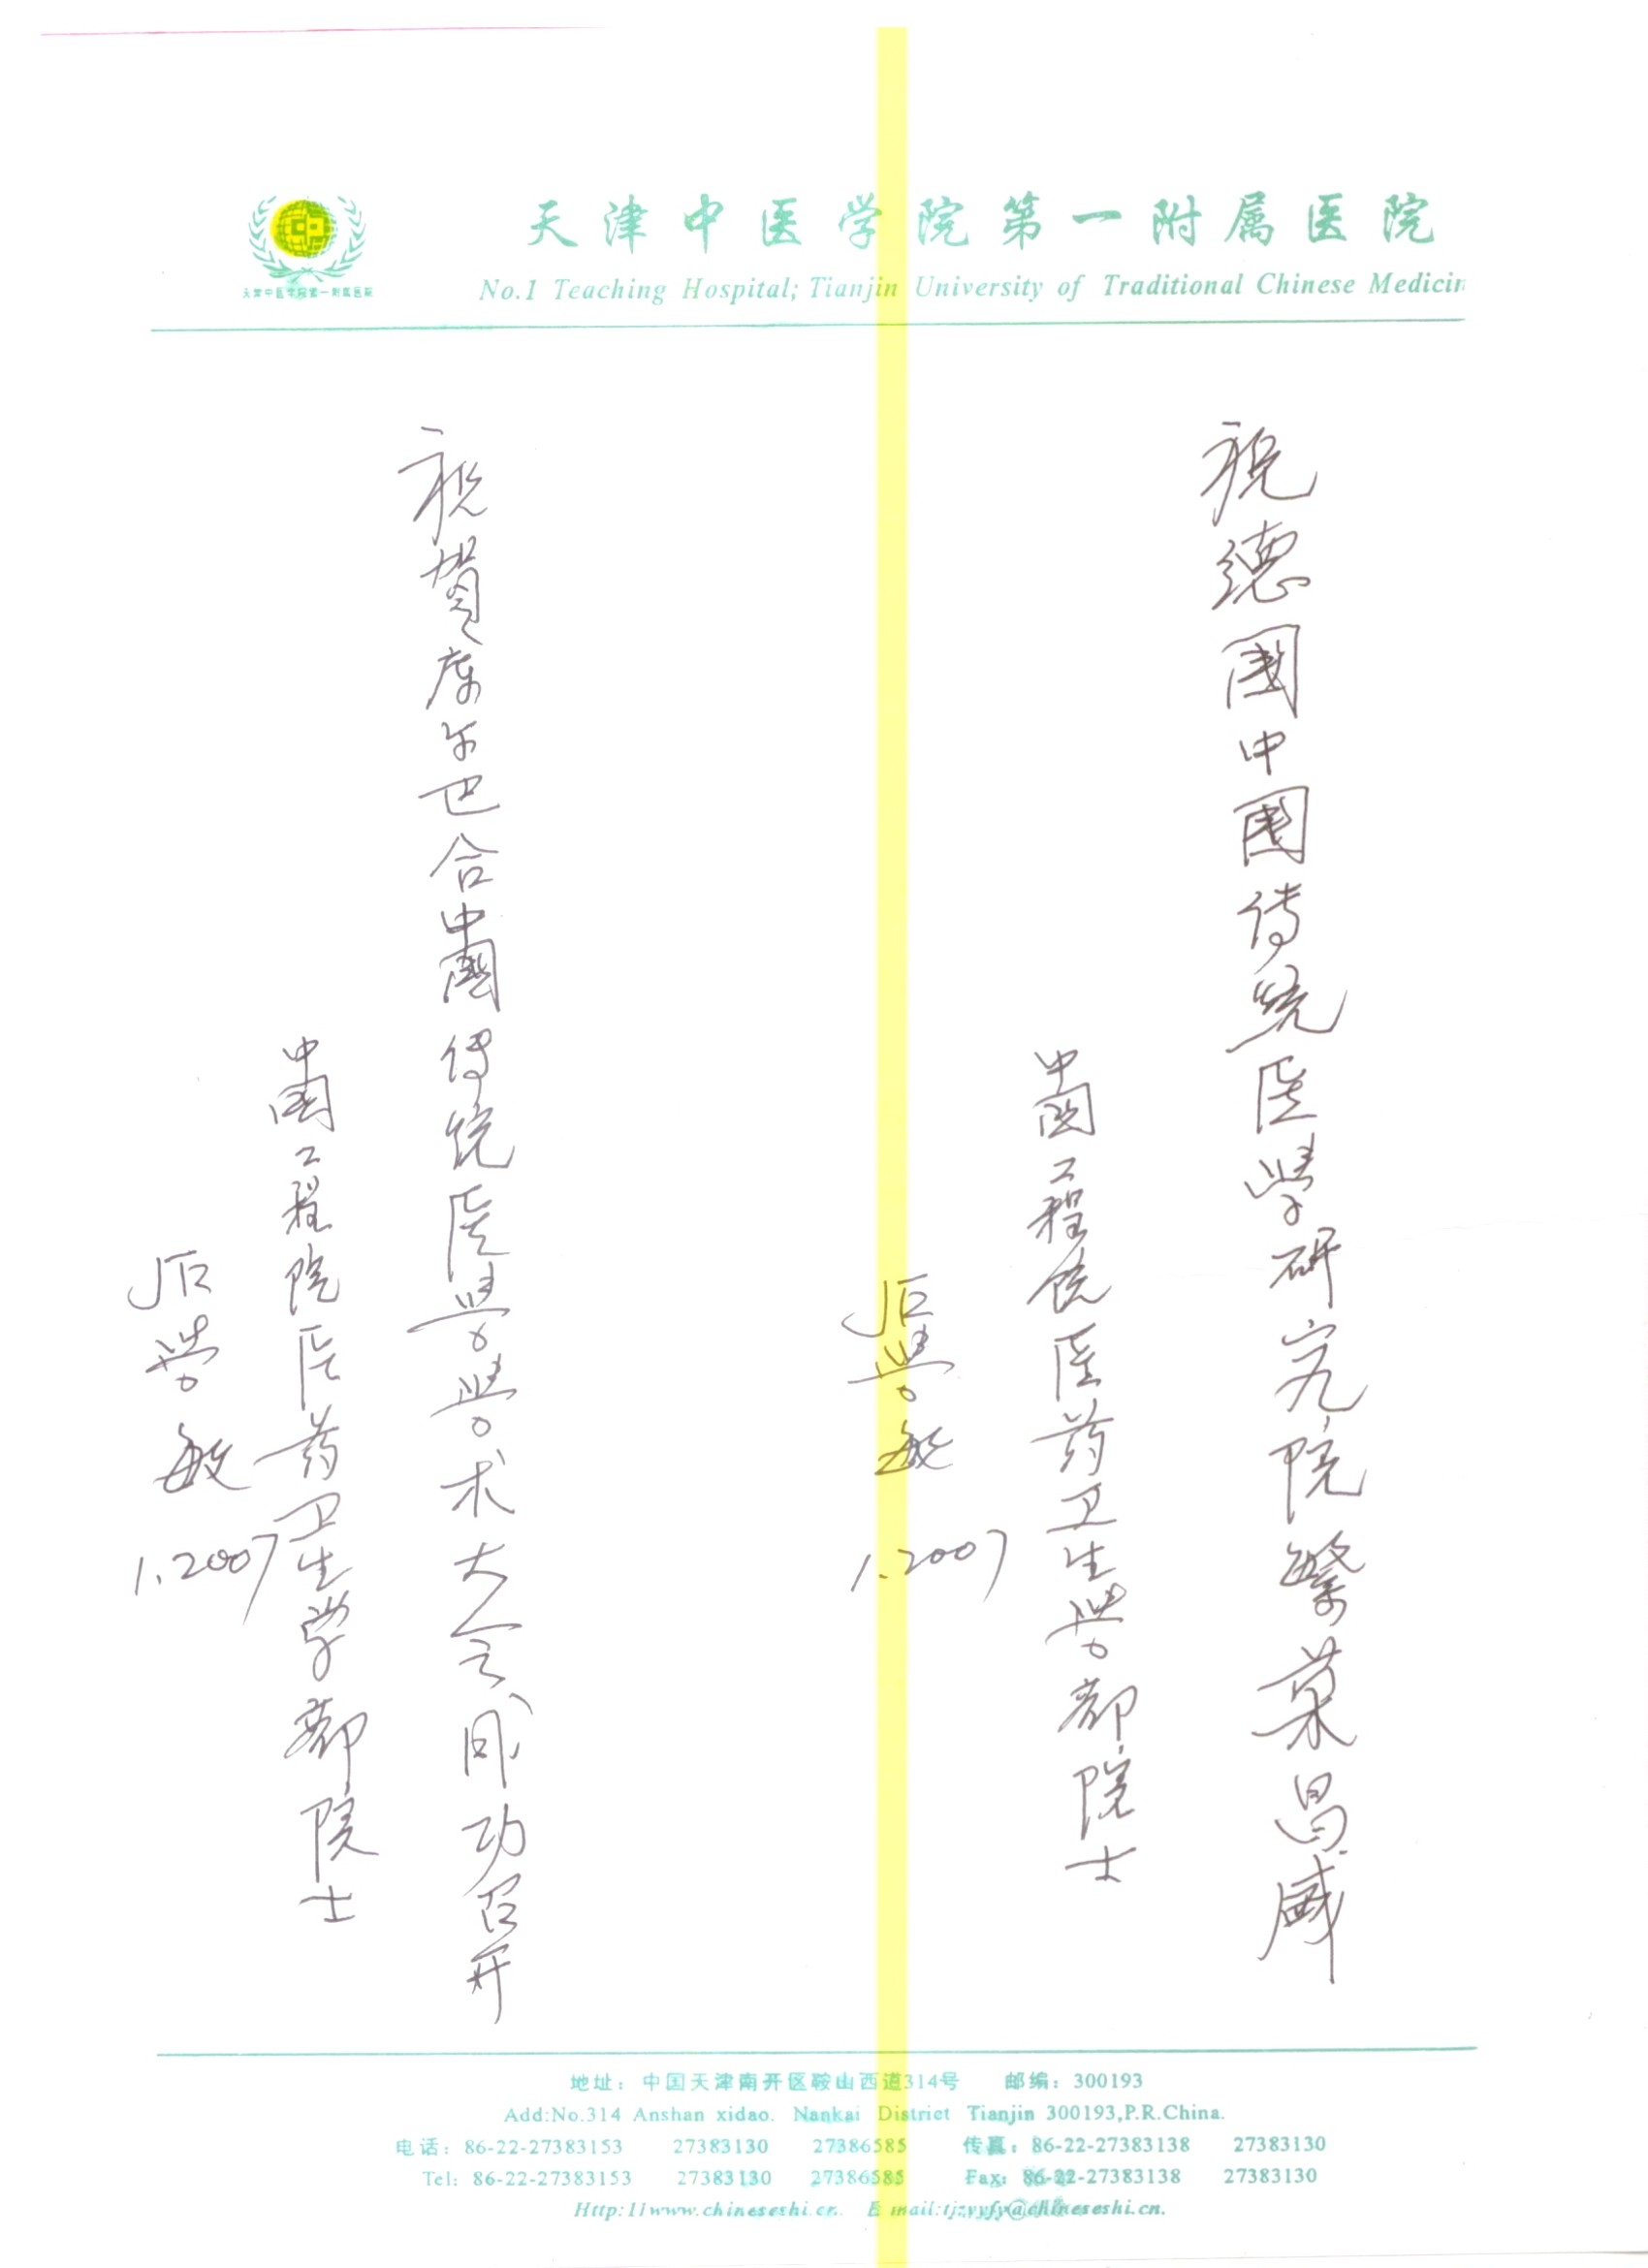 天津中医学院第一附属医院
No.1 Teaching Hospital; Tianjin University of Traditional Chinese Medicin
天津中医学院第一附属医院
祝德國中國传统医學研究院繁荣昌盛
中國工程院医药卫生學部院士
石學敏
1.2007
祝贺库尔巴合中國传统医學學术大会成功召开
中國工程院医药卫生学部院士
石学敏
1.2007
地址：中国天津南开区鞍山西道314号 邮编：300193
Add:No.314 Anshan xidao. Nankai District Tianjin 300193,P.R.China.
电话：86-22-27383153 27383130 27386585 传真：86-22-27383138 27383130
Tel: 86-22-27383153 27383130 27386585 Fax: 86-22-27383138 27383130
Http:11www.chineseshi.cn. E mail:tjzyyfy@chineseshi.cn.